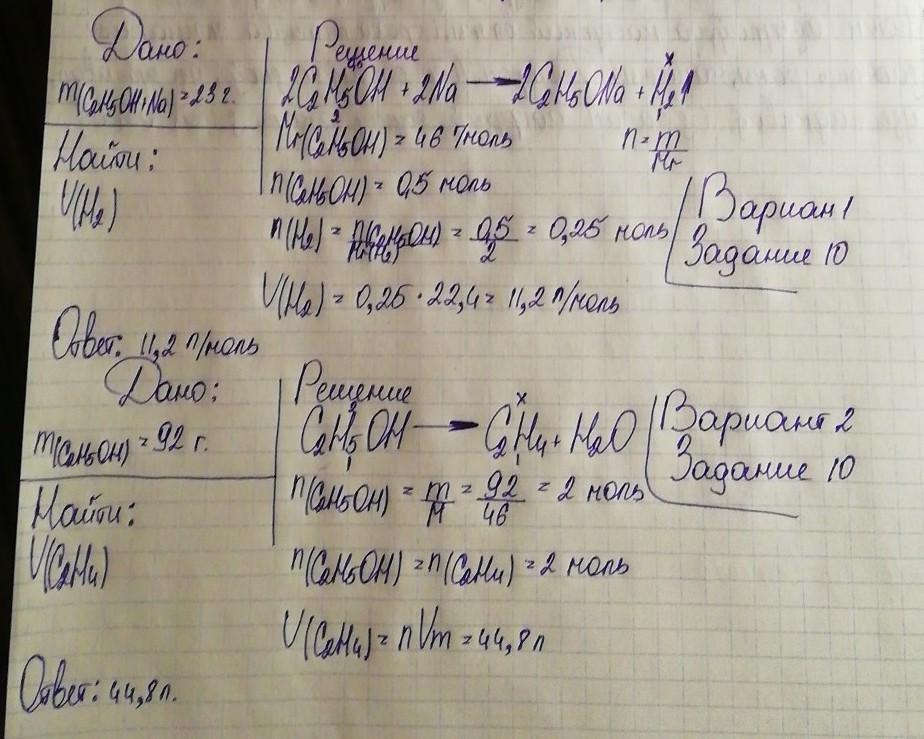 Дано:
m(C2H5OH+Na) = 23 г.
Найти:
V(H2)
Решение
x
2C2H5OH + 2Na → 2C2H5ONa + H2↑
2
Mr(C2H5OH) = 46 г/моль
n = m/Mr
n(C2H5OH) = 0,5 моль
n(H2) = n(C2H5OH)/Mr(H2) = 0,5/2 = 0,25 моль
V(H2) = 0,25 · 22,4 = 11,2 л/моль
Вариан 1
Задание 10
Ответ: 11,2 л/моль
Дано:
m(C2H5OH) = 92 г.
Найти:
V(C2H4)
Решение
x
C2H5OH → C2H4 + H2O
n(C2H5OH) = m/M = 92/46 = 2 моль
n(C2H5OH) = n(C2H4) = 2 моль
V(C2H4) = nVm = 44,8 л
Вариант 2
Задание 10
Ответ: 44,8 л.